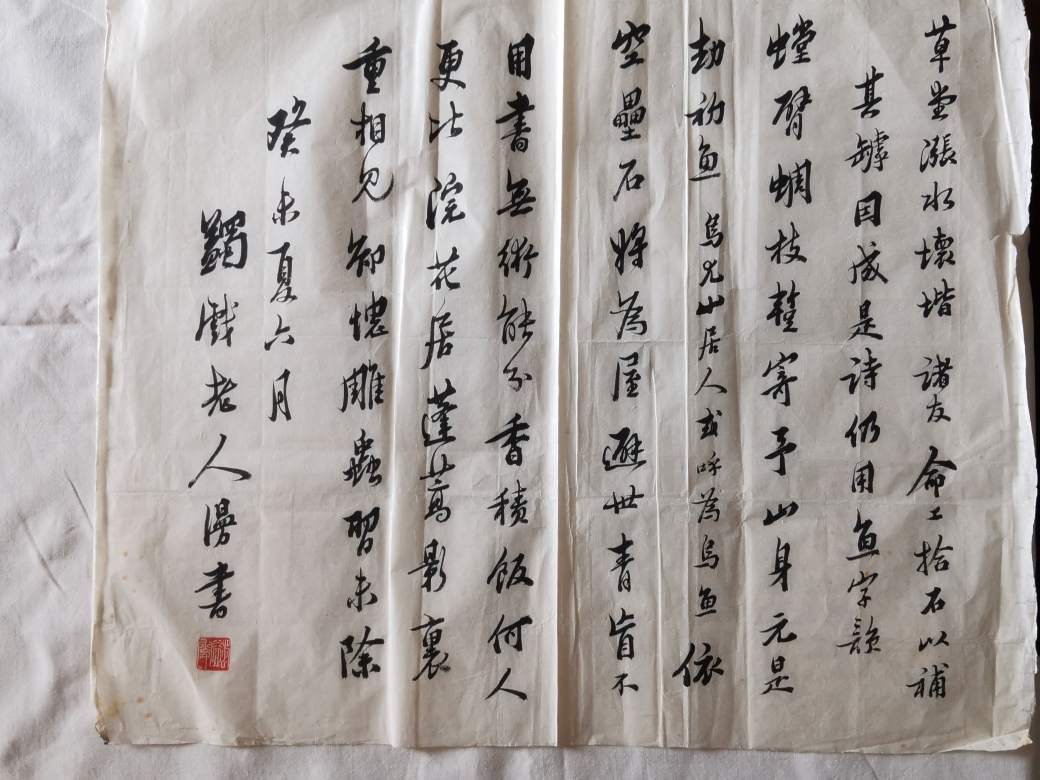 草堂漲水壞堦諸友命工拾石以補
其罅因成是詩仍用魚字韻
螳臂蜩枝暫寄予山身元是
劫初魚烏尤山居人或呼為烏魚依
空壘石將為屋避世青盲不
用書無術能分香積飯何人
更比浣花居蓬蒿影裏
重相見卻愢雕蟲習未除
癸未夏六月
蠲戲老人漫書